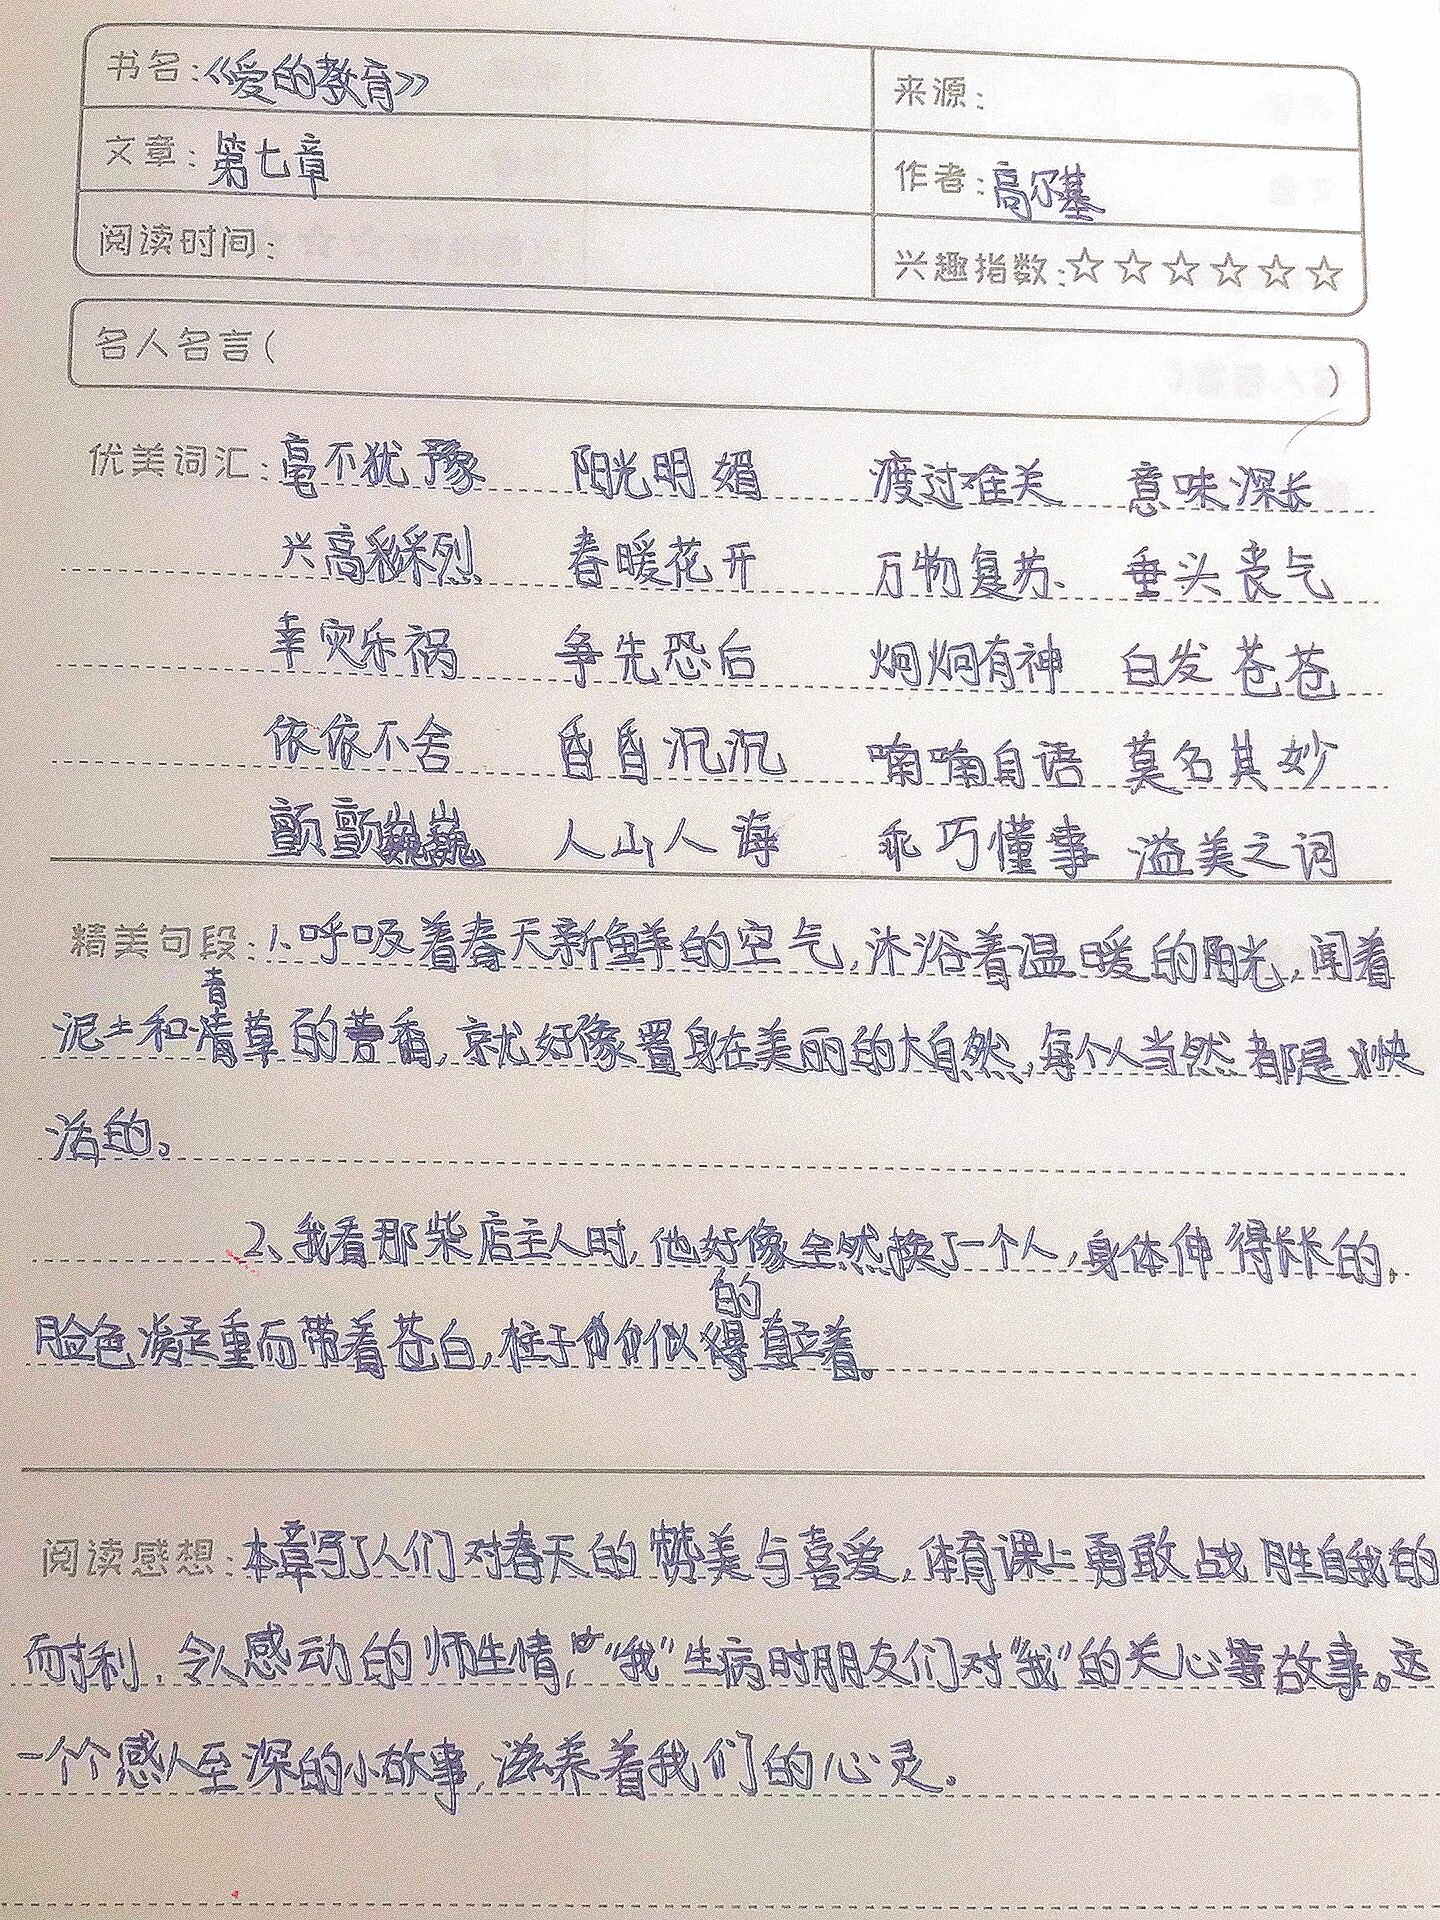 书名:《爱的教育》
来源:
文章:第七章
作者:高尔基
阅读时间:
兴趣指数:☆☆☆☆☆☆
名人名言( )
优美词汇:毫不犹豫 阳光明媚 渡过难关 意味深长
兴高采烈 春暖花开 万物复苏、 垂头丧气
幸灾乐祸 争先恐后 炯炯有神 白发苍苍
依依不舍 昏昏沉沉 喃喃自语 莫名其妙
颤颤巍巍 人山人海 乖巧懂事 溢美之词
精美句段:1、呼吸着春天新鲜的空气,沐浴着温暖的阳光,闻着
泥土和青草的芳香,就好像置身在美丽的大自然,每个人当然都是快
活的。
2、我看那柴店主人时,他好像全然换了一个人,身体伸得长长的,
脸色凝重而带着苍白,柱子似的直立着。
阅读感想:本章写了人们对春天的赞美与喜爱,体育课上勇敢战胜自我的
耐利,令人感动的师生情,“我”生病时朋友们对“我”的关心等故事。这
一个个感人至深的小故事,滋养着我们的心灵。